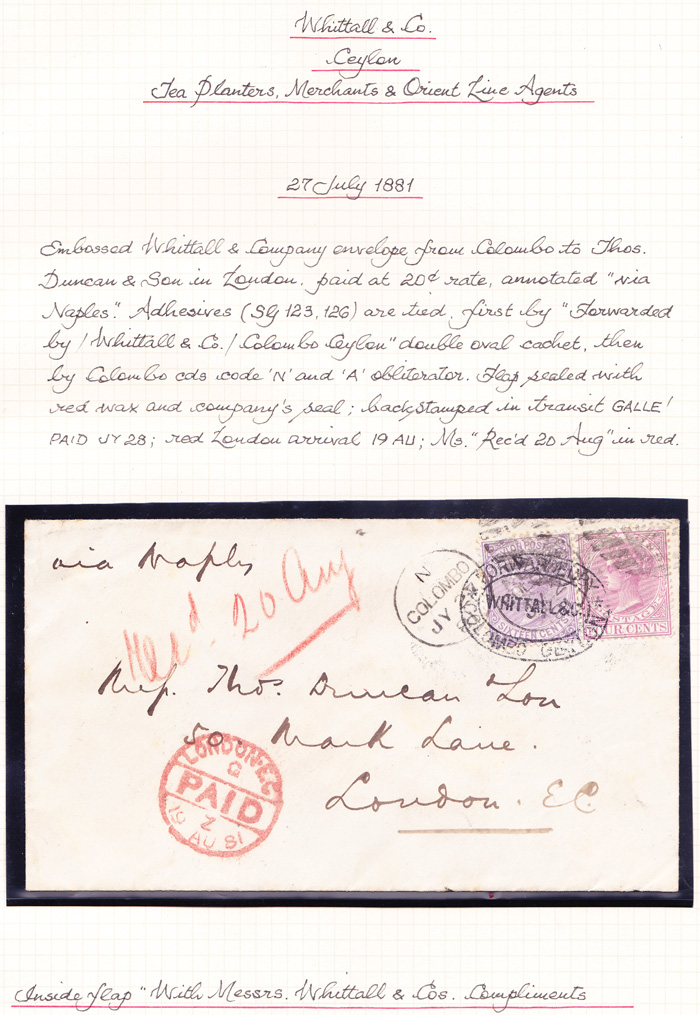 Whittall & Co.
Ceylon
Tea Planters, Merchants & Orient Line Agents
27 July 1881
Embossed Whittall & Company envelope from Colombo to Thos.
Duncan & Son in London, paid at 20¢ rate, annotated "via
Naples". Adhesives (SG 123, 126) are tied, first by "Forwarded
by / Whittall & Co. / Colombo Ceylon" double oval cachet, then
by Colombo cds code 'N' and 'A' obliterator. Flap sealed with
red wax and company's seal; backstamped in transit GALLE /
PAID JY 28; red London arrival 19 AU; Ms. "Rec'd 20 Aug" in red.
via Naples
Rec'd. 20 Aug
N
COLOMBO
JY
FORWARDED BY
WHITTALL & Co.
COLOMBO
SIXTEEN CENTS
FOUR CENTS
Thos. Duncan & Son
50. Mark Lane.
London. E.C.
LONDON.E.C
PAID
Z
19 AU 81
Inside flap "With Messrs. Whittall & Cos. Compliments